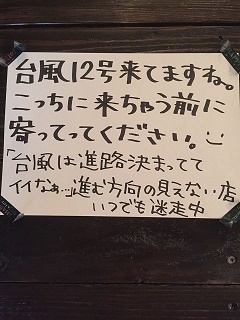 台風12号来てますね。
こっちに来ちゃう前に
寄ってってください。
「台風は進路決まってて
イイなぁ…」進む方向の見えない店
いつでも迷走中